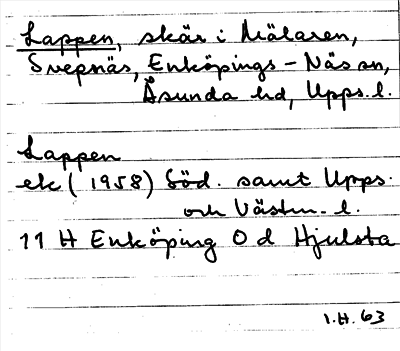 Lappen, skär i Mälaren,
Svepnäs, Enköpings-Näs sn,
Åsunda hd, Upps. l.
Lappen
ek (1958) Söd. samt Upps.
och Västm. l.
11 H Enköping 0 d Hjulsta
I.H. 63